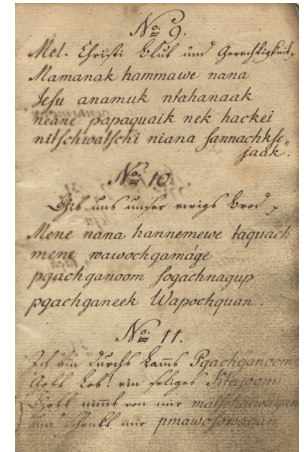 No. 9.
Mel. Christi Blut und Gerechtigkeit.
Mamanak hammawe nana
Jesu anamuk ntahanaak
neani papaquaik nek hackei
nitschwatschi niana sannachkse-
jaak.
No. 10.
Gib uns unser ewigs Brod,
Mene nana hannemewe taquach
mene wawochgamáge
pgachganoom sogachnagup
pgachganeek Wapochquan.
No. 11.
Ich bin durchs Lamms Pgachganoom
Gott Lob! ein seliges
Gott nimmt von mir
und schenkt mir pmawosowagan